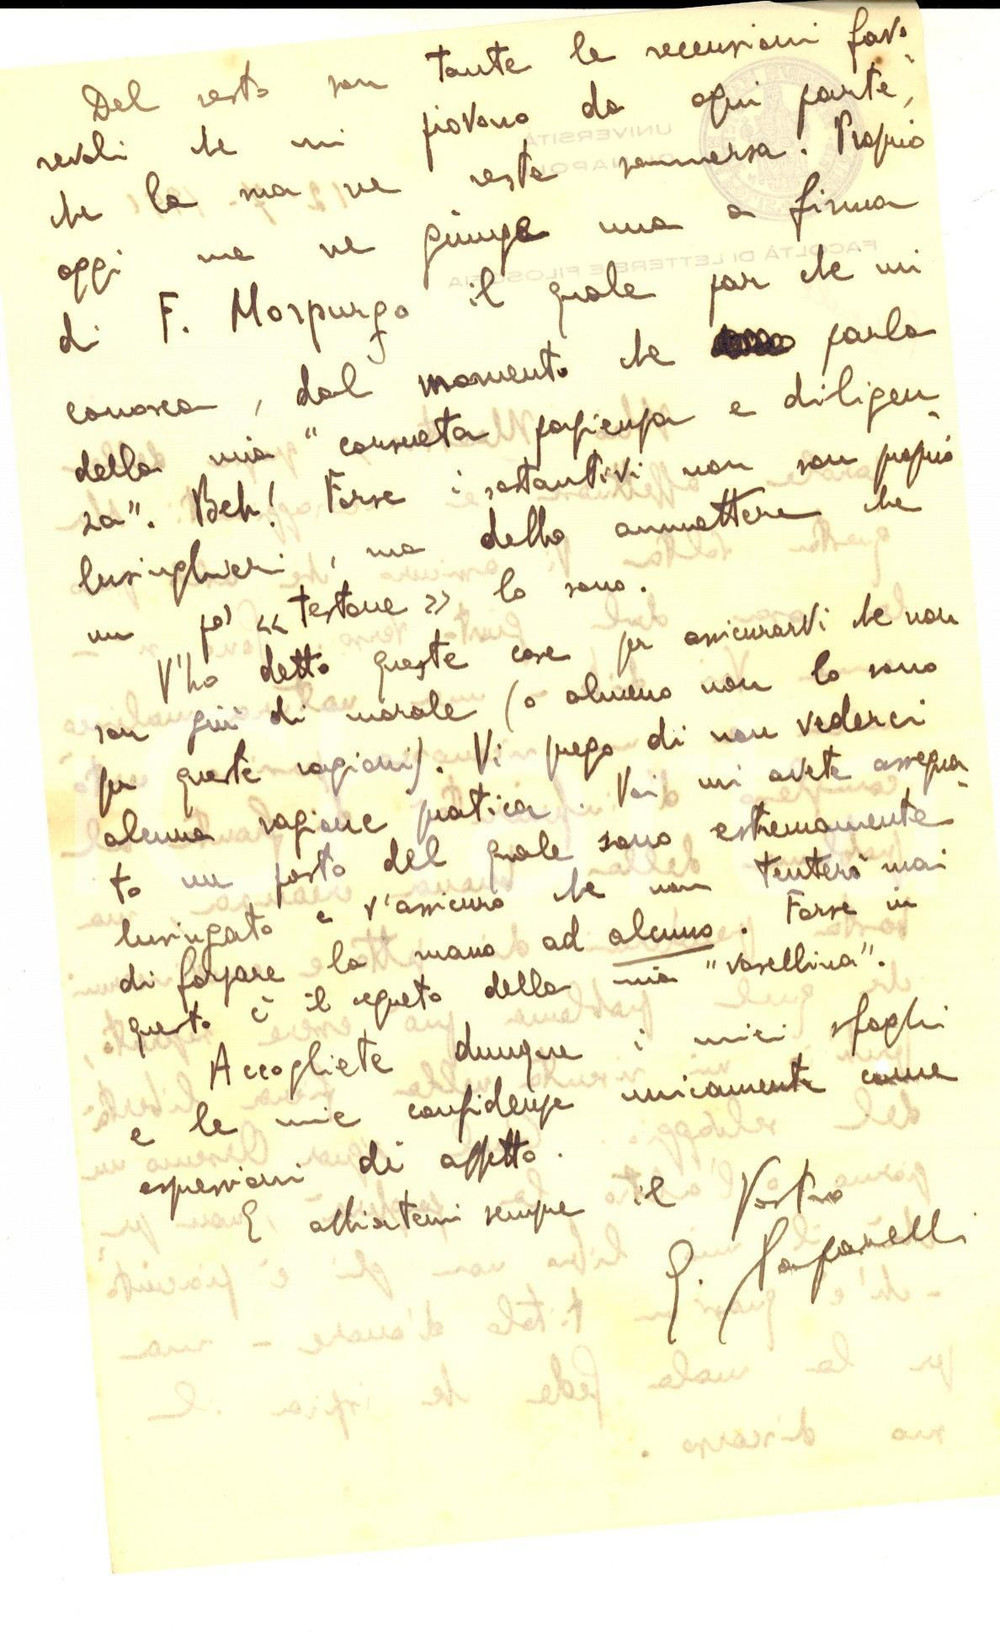 Del resto son tante le recensioni favo-
revoli che mi piovono da ogni parte,
che la sua ne resta sommersa. Proprio
oggi me ne giunge una a firma
di F. Morpurgo il quale par che mi
conosca, dal momento che parla
della mia "consueta pazienza e diligen-
za". Beh! Forse i sostantivi non son proprio
lusinghieri, ma debbo ammettere che
un po' «testone» lo sono.
V'ho detto queste cose per assicurarvi che non
son giù di morale (o almeno non lo sono
per queste ragioni). Vi prego di non vederci
alcuna ragione pratica. Voi mi avete assegna-
to un posto del quale sono estremamente
lusingato e v'assicuro che non tenterò mai
di forzare la mano ad alcuno. Forse in
questo è il segreto della mia "vasellina".
Accogliete dunque i miei sfoghi
e le mie confidenze unicamente come
espressioni di affetto.
E abbiatemi sempre il Vostro
UNIVERSITÀ
NAPOLI
FACOLTÀ DI LETTERE E FILOSOFIA